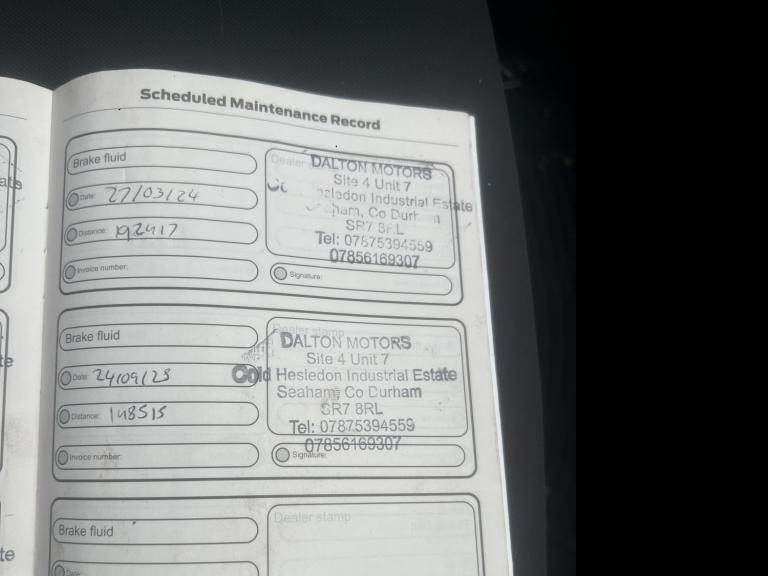 Scheduled Maintenance Record
Brake fluid
Date: 27/03/24
Distance: 192417
Invoice number:
Dealer
DALTON MOTORS
Site 4 Unit 7
Industrial Estate
Co
SR7
Tel: 07875394559
07856169307
Signature:
Brake fluid
Date: 24/09/23
Distance: 148515
Invoice number:
Dealer stamp
DALTON MOTORS
Site 4 Unit 7
Cold Hesledon Industrial Estate
Seaham, Co Durham
SR7 8RL
Tel: 07875394559
07856169307
Signature:
Brake fluid
Dealer stamp
Date: